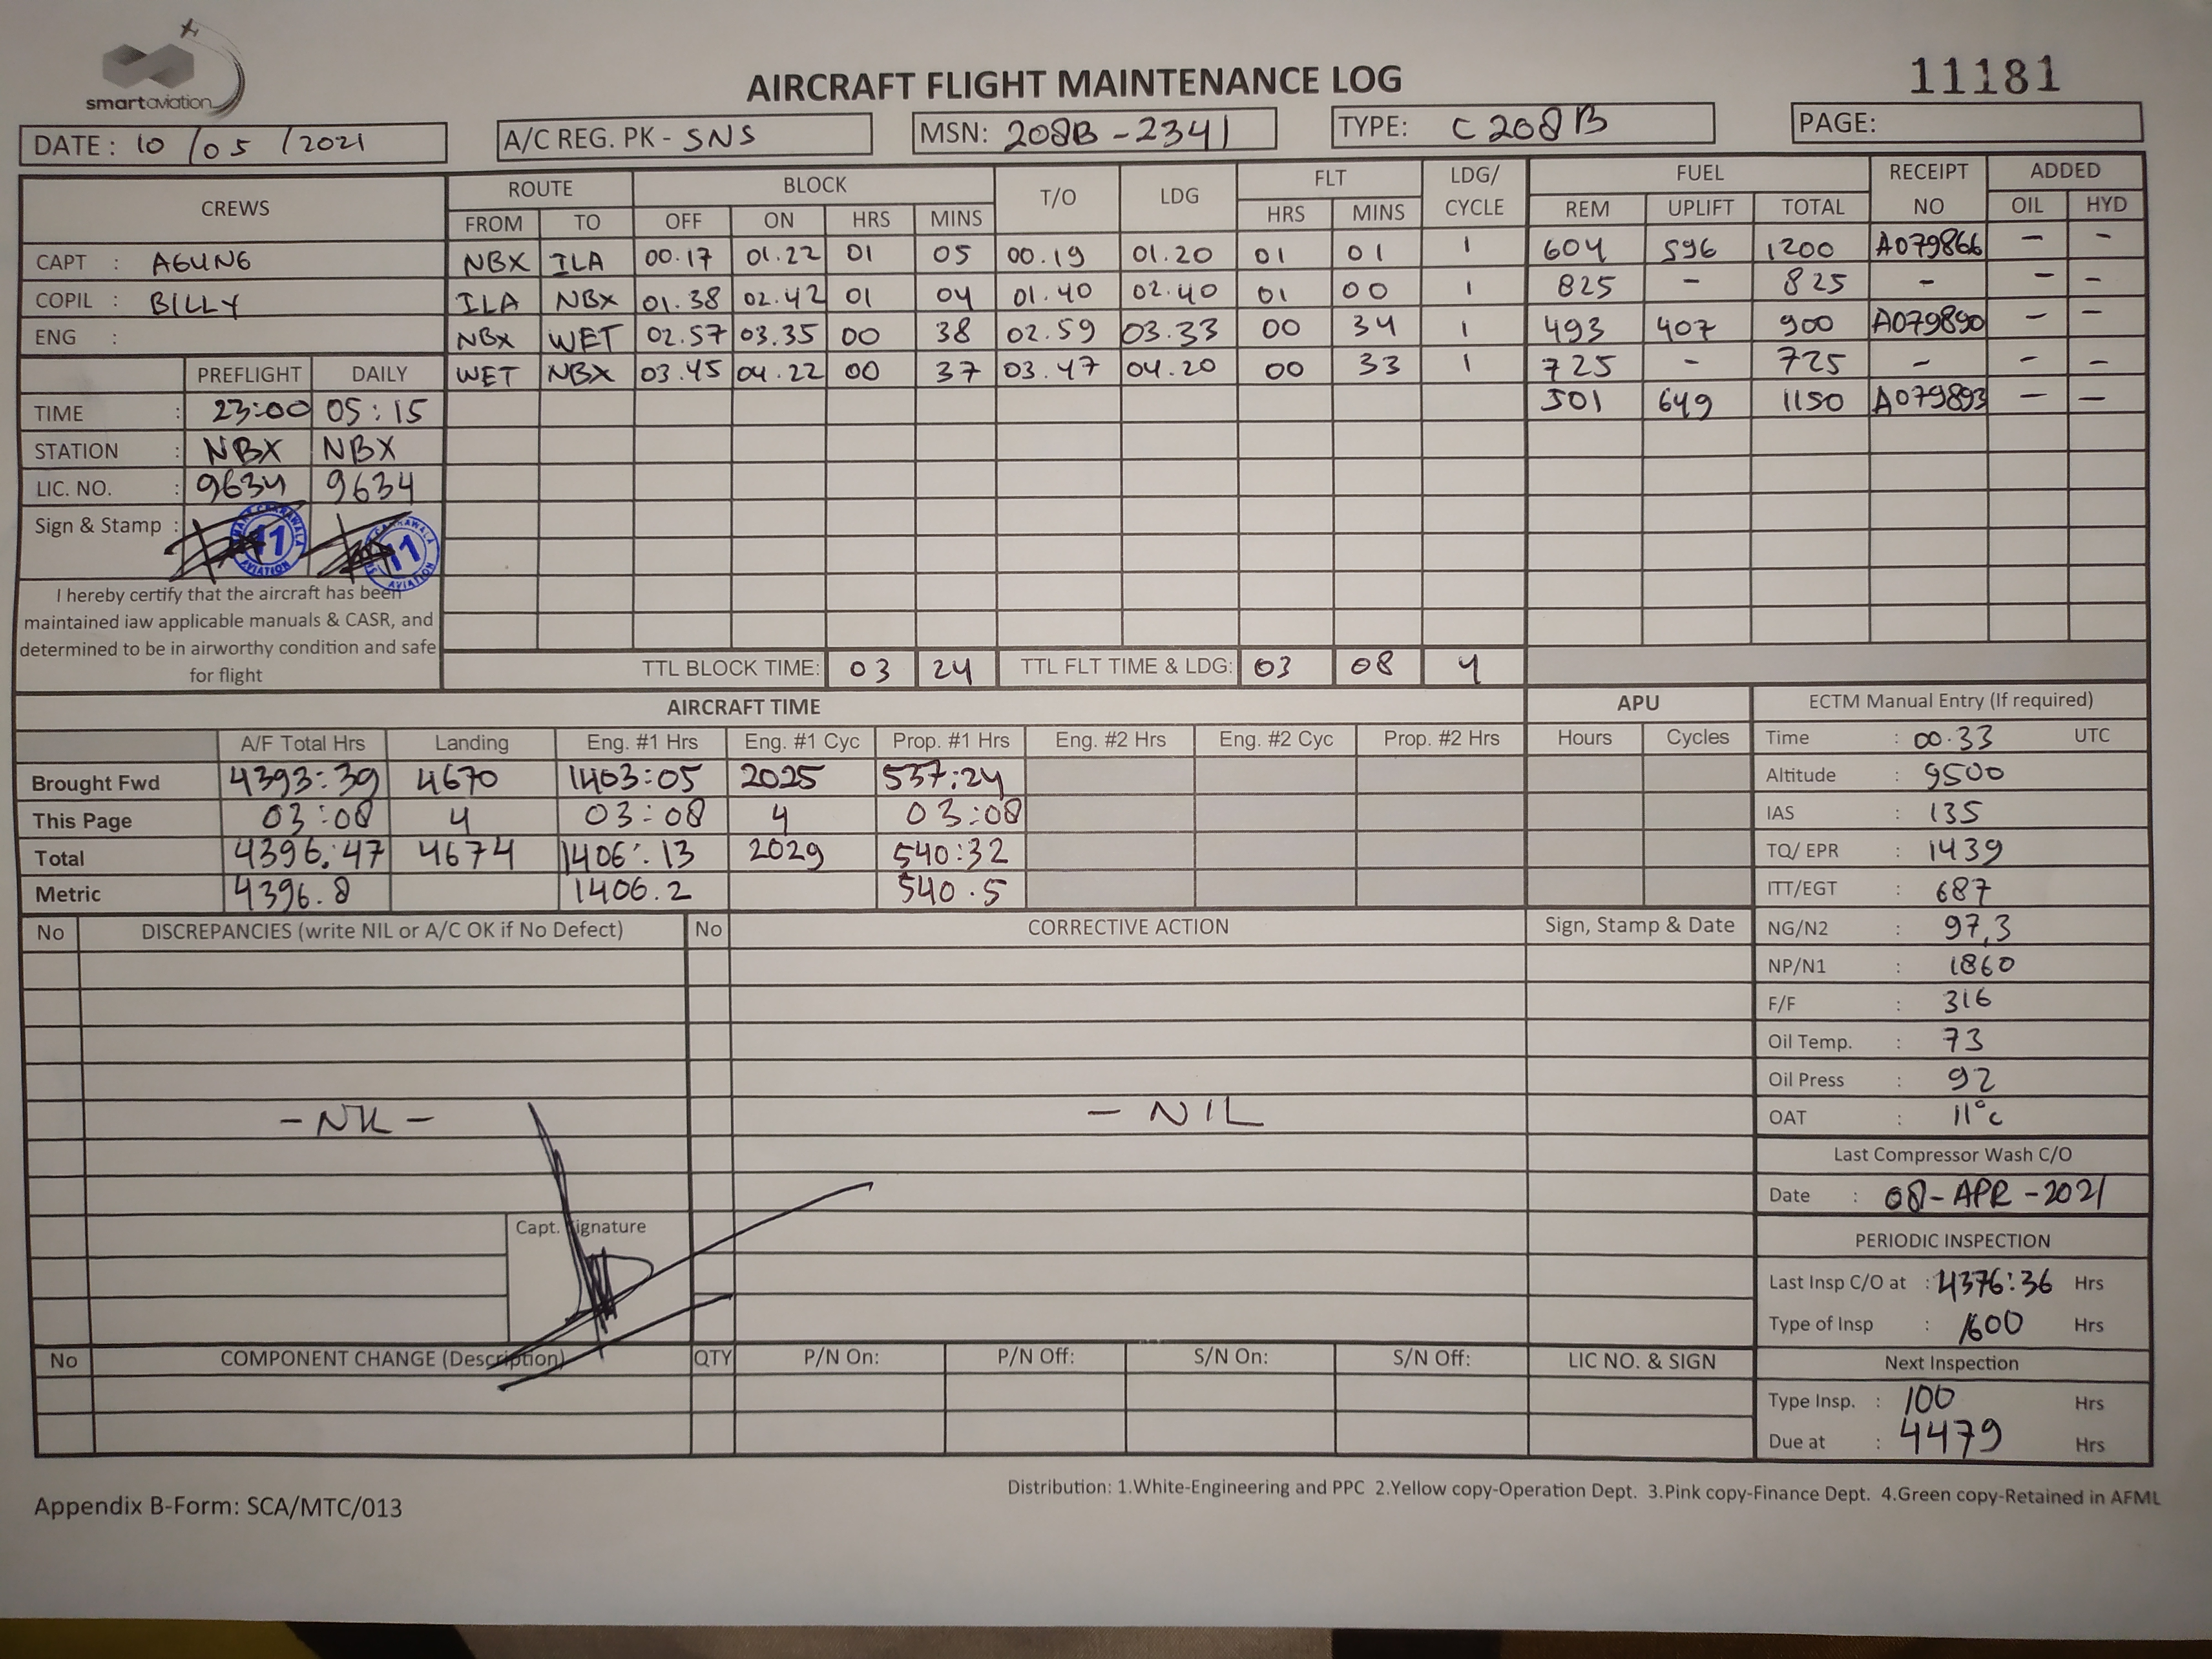 smartaviation
AIRCRAFT FLIGHT MAINTENANCE LOG
11181
DATE : 10 / 05 / 2021
A/C REG. PK - SNS
MSN: 208B - 2341
TYPE: C 208 B
PAGE:
CREWS ROUTE BLOCK T/O LDG FLT LDG/ CYCLE FUEL RECEIPT NO ADDED
FROM TO OFF ON HRS MINS HRS MINS REM UPLIFT TOTAL OIL HYD
CAPT : AGUNG NBX ILA 00.17 01.22 01 05 00.19 01.20 01 01 1 604 596 1200 A079866 – –
COPIL : BILLY ILA NBX 01.38 02.42 01 04 01.40 02.40 01 00 1 825 – 825 – – –
ENG : NBX WET 02.57 03.35 00 38 02.59 03.33 00 34 1 493 407 900 A079890 – –
PREFLIGHT DAILY WET NBX 03.45 04.22 00 37 03.47 04.20 00 33 1 725 – 725 – – –
TIME : 23:00 05:15 501 649 1150 A079893 – –
STATION : NBX NBX
LIC. NO. : 9634 9634
Sign & Stamp : 11 AVIATION 11 AVIATION
I hereby certify that the aircraft has been
maintained iaw applicable manuals & CASR, and
determined to be in airworthy condition and safe
for flight
TTL BLOCK TIME: 03 24 TTL FLT TIME & LDG: 03 08 4
AIRCRAFT TIME APU
A/F Total Hrs Landing Eng. #1 Hrs Eng. #1 Cyc Prop. #1 Hrs Eng. #2 Hrs Eng. #2 Cyc Prop. #2 Hrs Hours Cycles
Brought Fwd 4393:39 4670 1403:05 2025 537:24
This Page 03:08 4 03:08 4 03:08
Total 4396:47 4674 1406:13 2029 540:32
Metric 4396.8 1406.2 540.5
ECTM Manual Entry (If required)
Time : 00.33 UTC
Altitude : 9500
IAS : 135
TQ/ EPR : 1439
ITT/EGT : 687
NG/N2 : 97,3
NP/N1 : 1860
F/F : 316
Oil Temp. : 73
Oil Press : 92
OAT : 11°c
Last Compressor Wash C/O
Date : 08 - APR - 2021
PERIODIC INSPECTION
Last Insp C/O at : 4376:36 Hrs
Type of Insp : 1600 Hrs
Next Inspection
Type Insp. : 100 Hrs
Due at : 4479 Hrs
No DISCREPANCIES (write NIL or A/C OK if No Defect) No CORRECTIVE ACTION Sign, Stamp & Date
- NIL - — NIL
Capt. Signature
No COMPONENT CHANGE (Description) QTY P/N On: P/N Off: S/N On: S/N Off: LIC NO. & SIGN
Distribution: 1.White-Engineering and PPC 2.Yellow copy-Operation Dept. 3.Pink copy-Finance Dept. 4.Green copy-Retained in AFML
Appendix B-Form: SCA/MTC/013